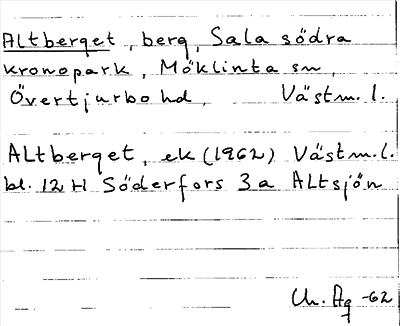 Altberget, berg, Sala södra
kronopark, Möklinta sn,
Övertjurbo hd, Västm. l.
Altberget, ek (1962) Västm. l.
bl. 12 H Söderfors 3 a Altsjön
Ch. Ag -62